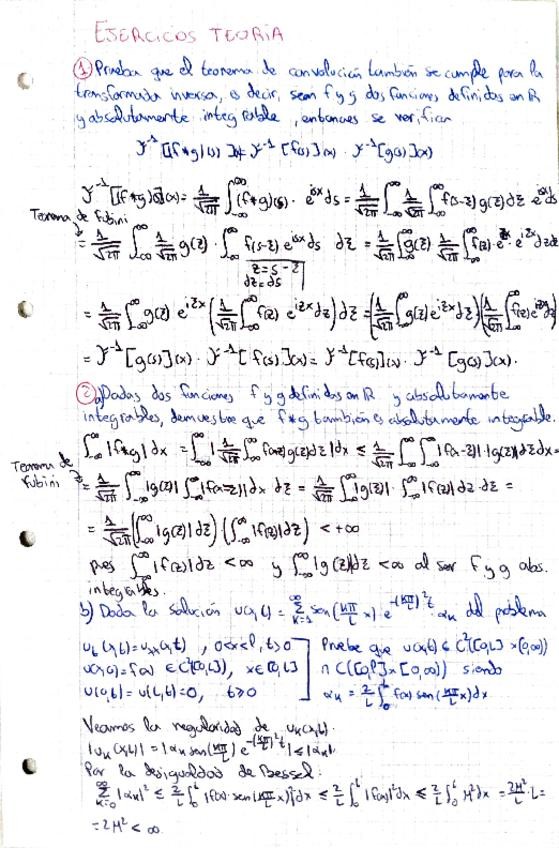 EJERCICOS TEORIA
① Prueba que el teorema de convolución también se cumple para la
transformada inversa, es decir, sean f y g dos funciones definidas en R
y absolutamente integrable, entonces se verifica
F⁻¹[(f*g)(s)](x) = F⁻¹[f(s)](x) · F⁻¹[g(s)](x)
F⁻¹[(f*g)(s)](x) = 1/√2π ∫_{-∞}^{∞} (f*g)(s) · e^{isx} ds = 1/√2π ∫_{-∞}^{∞} 1/√2π ∫_{-∞}^{∞} f(s-z) g(z) dz e^{isx} ds
Teorema de Fubini
= 1/√2π ∫_{-∞}^{∞} 1/√2π g(z) · ∫_{-∞}^{∞} f(s-z) e^{isx} ds dz = 1/√2π ∫_{-∞}^{∞} g(z) 1/√2π ∫_{-∞}^{∞} f(z) · e^{izx} · e^{izx} dz dz
z = s - z
dz = ds
= 1/√2π ∫_{-∞}^{∞} g(z) e^{izx} (1/√2π ∫_{-∞}^{∞} f(z) e^{izx} dz) dz = (1/√2π ∫_{-∞}^{∞} g(z) e^{izx} dz)(1/√2π ∫_{-∞}^{∞} f(z) e^{izx} dz)
= F⁻¹[g(s)](x) · F⁻¹[f(s)](x) = F⁻¹[f(s)](x) · F⁻¹[g(s)](x).
② a) Dadas dos funciones f y g definidas en R y absolutamente
integrables, demuestre que f*g también es absolutamente integrable.
∫_{-∞}^{∞} |f*g| dx = ∫_{-∞}^{∞} |1/√2π ∫_{-∞}^{∞} f(x-z) g(z) dz| dx ≤ 1/√2π ∫_{-∞}^{∞} ∫_{-∞}^{∞} |f(x-z)|·|g(z)| dz dx =
Teorema de Fubini
= 1/√2π ∫_{-∞}^{∞} |g(z)| ∫_{-∞}^{∞} |f(x-z)| dx dz = 1/√2π ∫_{-∞}^{∞} |g(z)| · ∫_{-∞}^{∞} |f(z)| dz · dz =
= 1/√2π (∫_{-∞}^{∞} |g(z)| dz) (∫_{-∞}^{∞} |f(z)| dz) < +∞
pues ∫_{-∞}^{∞} |f(z)| dz < ∞ y ∫_{-∞}^{∞} |g(z)| dz < ∞ al ser f y g abs.
integrables.
b) Dada la solución u(x,t) = Σ_{k=1}^{∞} sen(kπ/L x) · e^{-(kπ/L)² t} · αk del problema
u_t(x,t) = u_xx(x,t) , 0<x<L, t>0
u(x,0) = f(x) ∈ C²[0,L], x∈[0,L]
u(0,t) = u(L,t) = 0, t≥0
Pruebe que u(x,t) ∈ C²([0,L]×(0,∞))
∩ C([0,L]×[0,∞)) siendo
αk = 2/L ∫_0^L f(x) sen(kπ/L x) dx
Veamos la regularidad de uk(x,t).
|uk(x,t)| = |αk sen(kπ/L x) e^{-(kπ/L)² t}| ≤ |αk|
Por la desigualdad de Bessel:
Σ_{k=0}^{∞} |αk|² ≤ 2/L ∫_0^L |f(x)·sen(kπ/L x)|² dx ≤ 2/L ∫_0^L |f(x)|² dx ≤ 2/L ∫_0^L M² dx = 2M²/L · L =
= 2M² < ∞